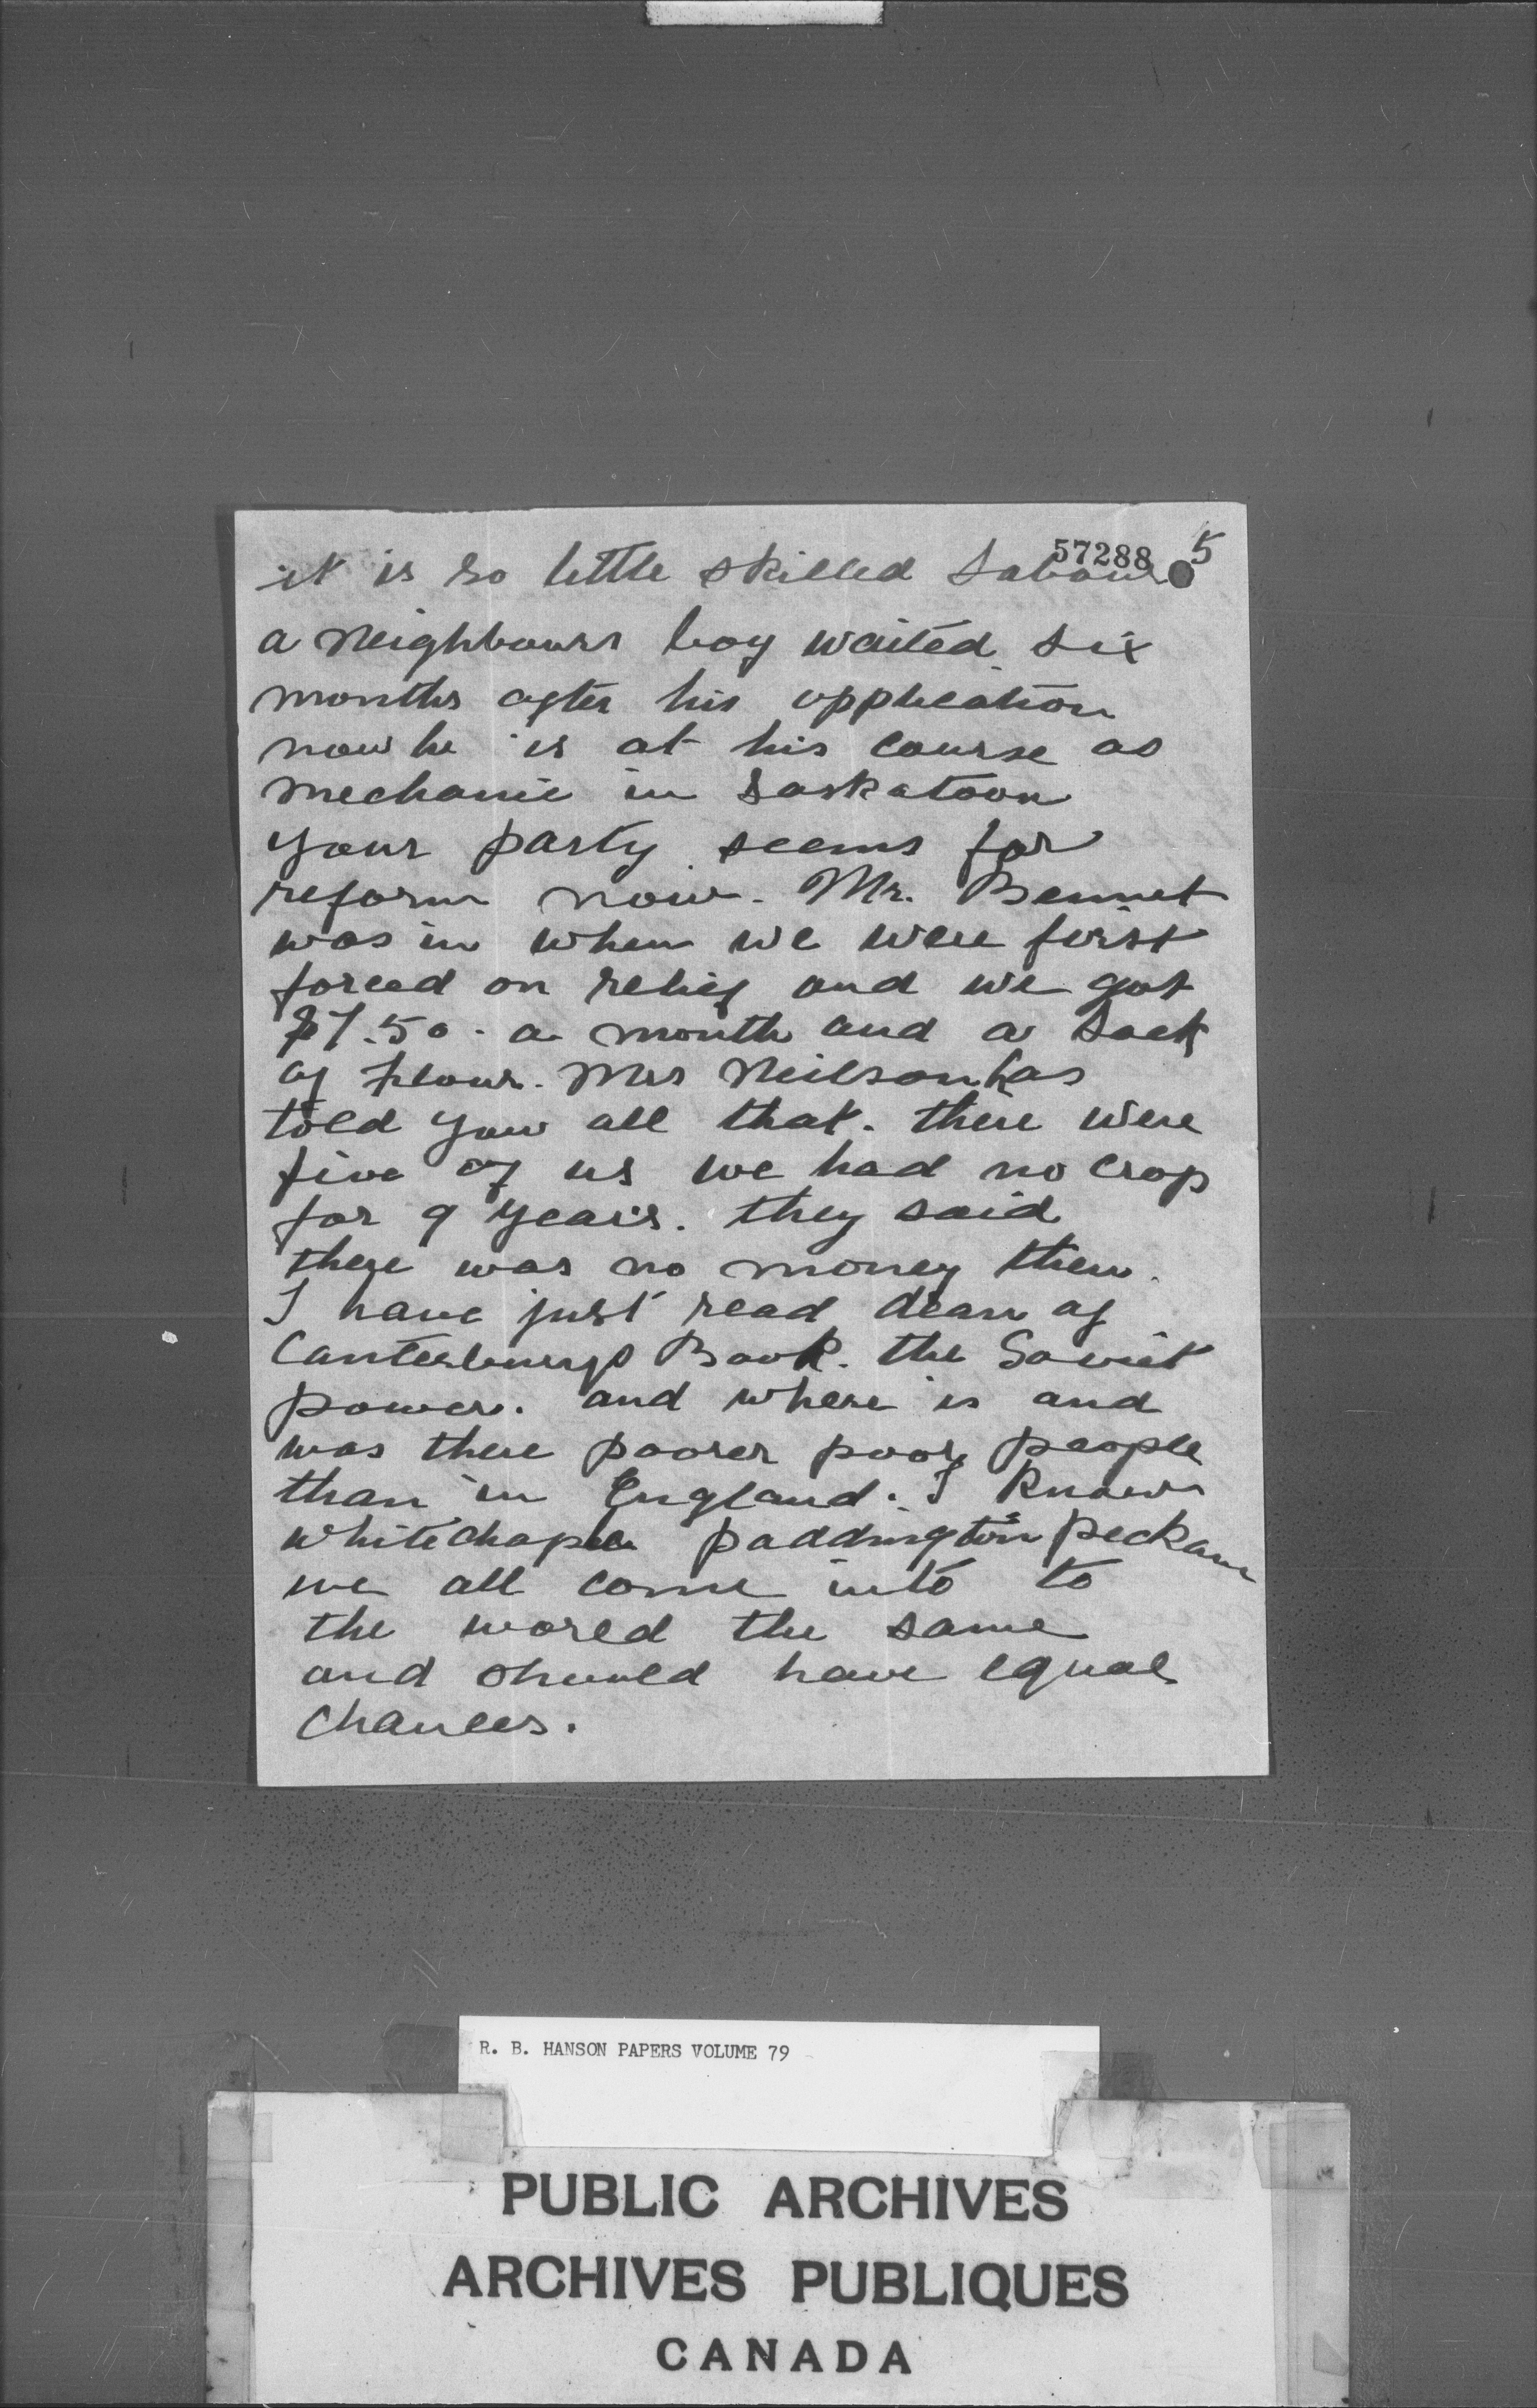 57288 5
it is so little skilled Labour
a Neighbours boy waited six
months after his application
now he is at his course as
mechanic in Saskatoon
your party seems for
reform now. Mr. Bennet
was in when we were first
forced on relief and we got
$7.50 a month and a sack
of flour. Mrs Neilson has
told you all that. there were
five of us we had no crop
for 9 years. they said
there was no money then.
I have just read dean of
Canterburys Book. the Soviet
power. and where is and
was there poorer poor people
than in England. I know
whitechaple paddington peckam
we all come into to
the world the same
and should have equal
chances.
R. B. HANSON PAPERS VOLUME 79
PUBLIC ARCHIVES
ARCHIVES PUBLIQUES
CANADA